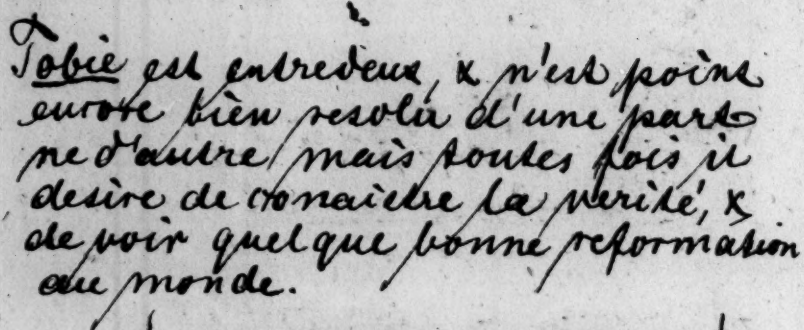 Tobie est entredeux, & n'est point
encore bien resolu d'une part
ne d'autre, mais toutes fois il
desire de cronaietre la verité, &
de voir quelque bonne reformation
au monde.